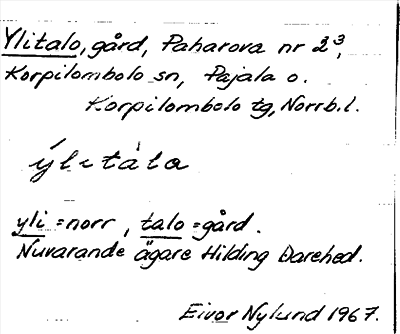 Ylitalo, gård, Paharova nr 2³,
Korpilombolo sn, Pajala o.
Korpilombolo tg, Norrb.l.
ýlitàlo
yli = norr, talo = gård.
Nuvarande ägare Hilding Darehed.
Eivor Nylund 1967.